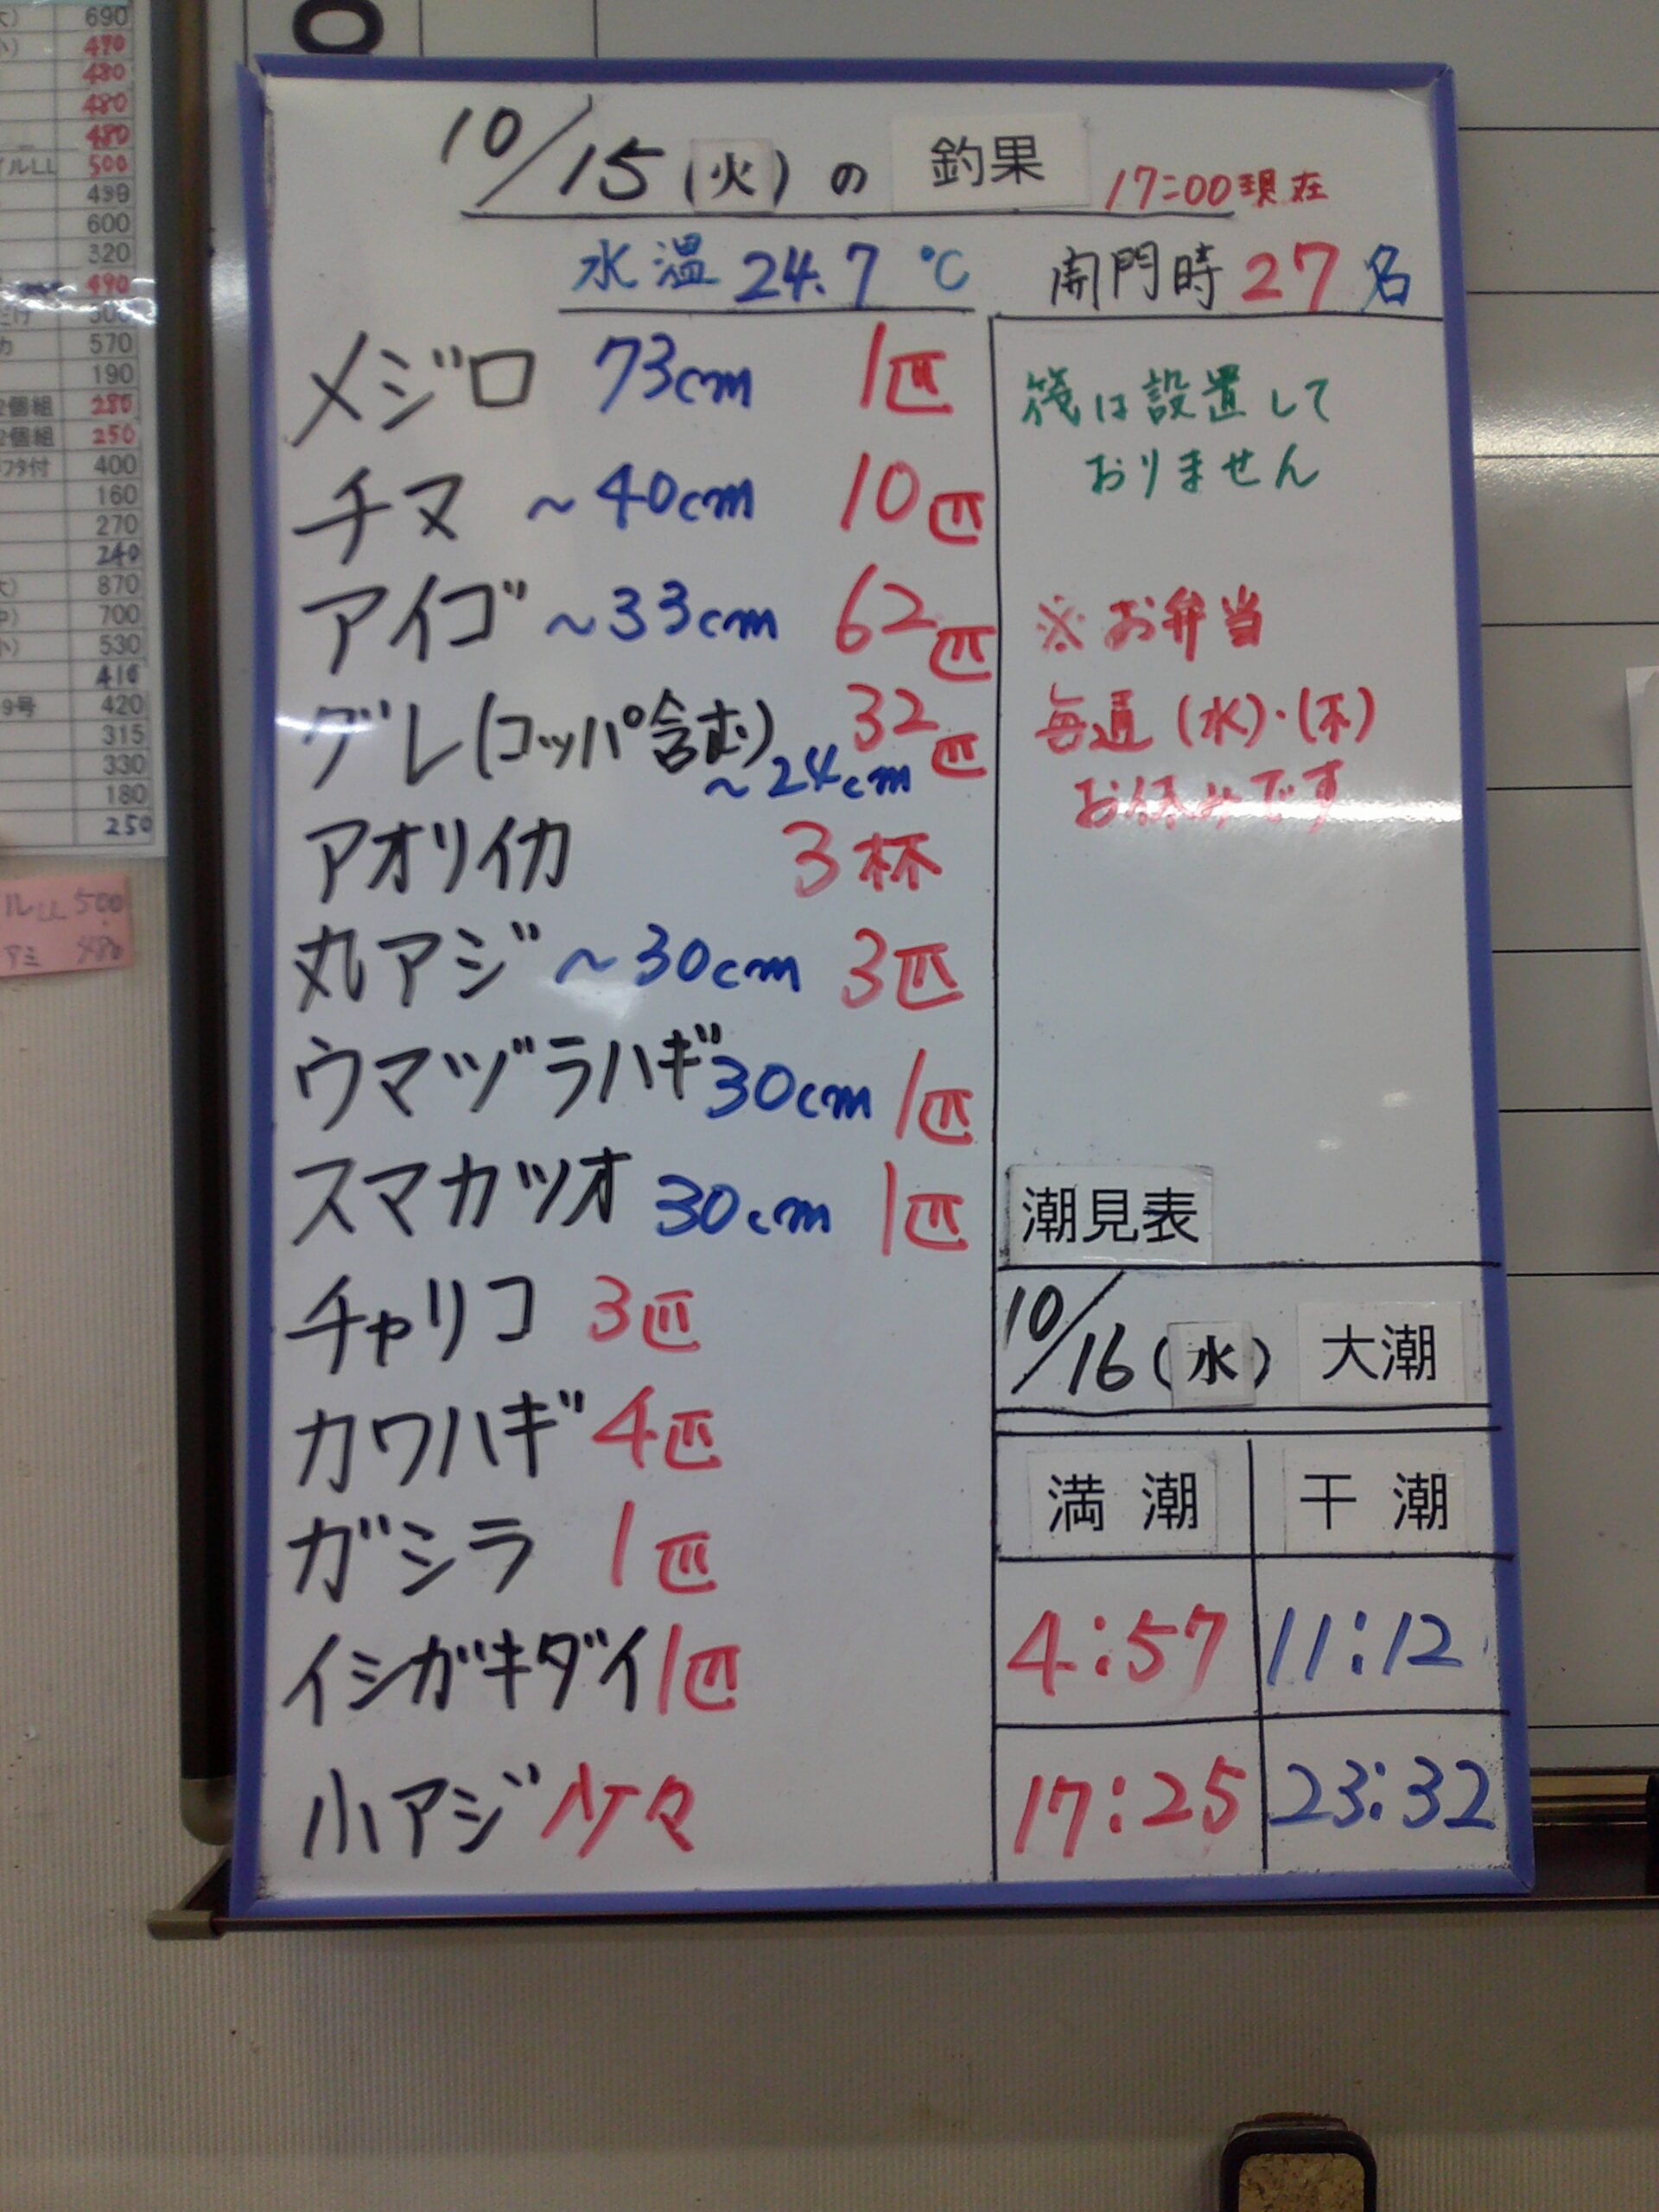 10/15(火)の 釣果 17:00現在
水温 24.7 ℃ 開門時 27名
メジロ 73cm 1匹
チヌ ~40cm 10匹
アイゴ ~33cm 62匹
グレ(コッパ含む) ~24cm 32匹
アオリイカ 3杯
丸アジ ~30cm 3匹
ウマヅラハギ 30cm 1匹
スマカツオ 30cm 1匹
チャリコ 3匹
カワハギ 4匹
ガシラ 1匹
イシガキダイ 1匹
小アジ 少々
筏は設置して
おりません
※お弁当
毎週(水)・(木)
お休みです
潮見表
10/16(水) 大潮
満潮 干潮
4:57 11:12
17:25 23:32
690
470
480
480
480
イルLL 500
499
600
320
490
570
190
2個組 280
2個組 250
フタ付 400
160
270
240
870
700
530
410
9号 420
315
330
180
250
ルLL 500
アミ 480